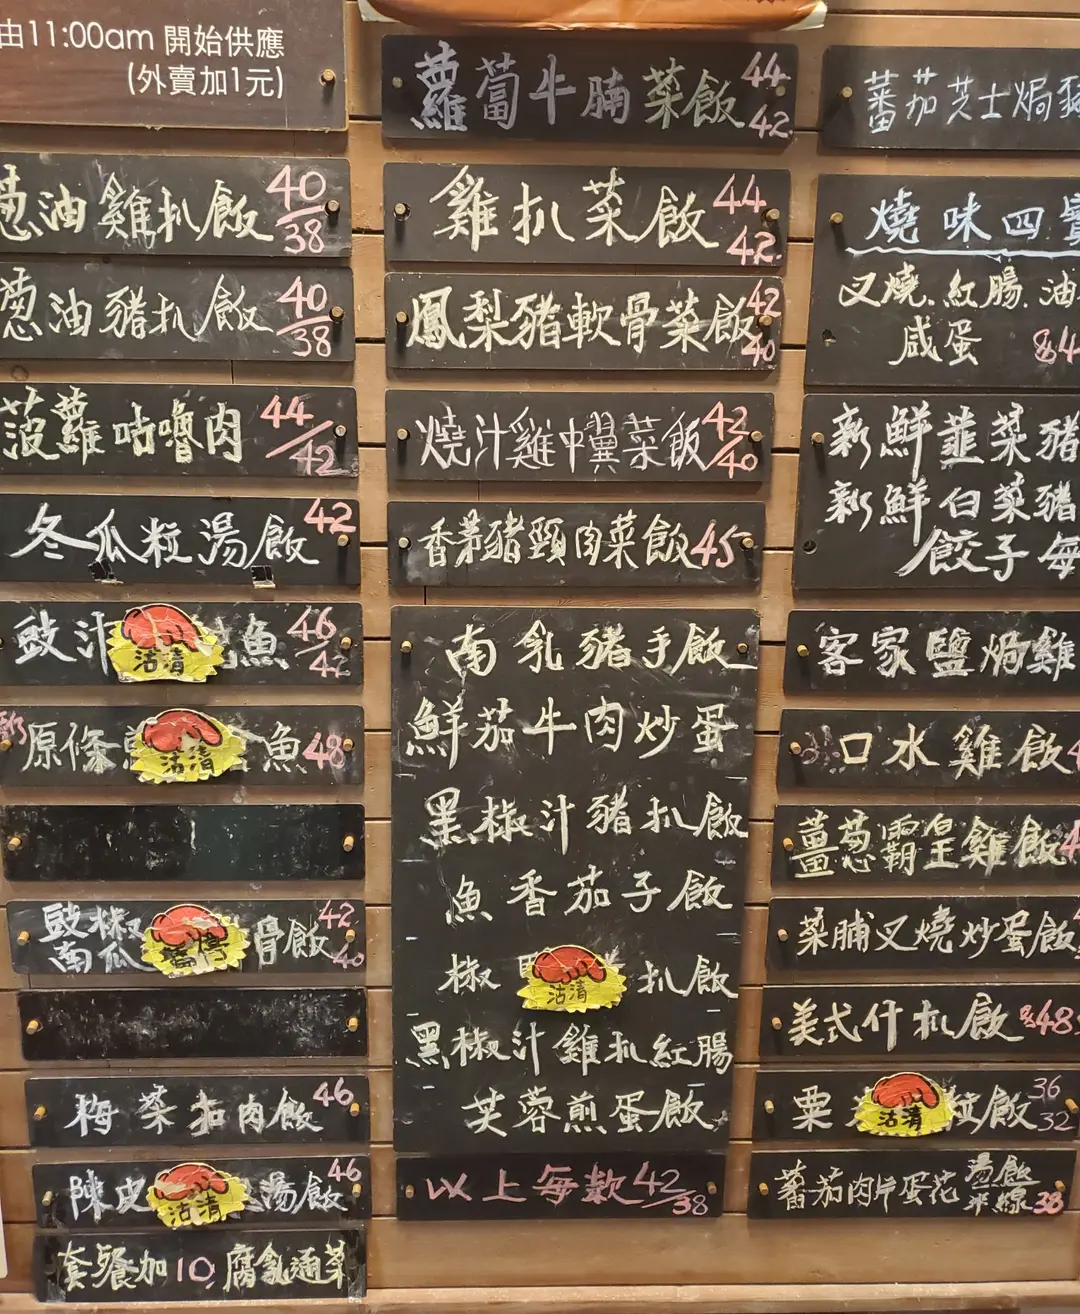 由11:00am 開始供應
(外賣加1元)
葱油雞扒飯 40/38
葱油豬扒飯 40/38
菠蘿咕嚕肉 44/42
冬瓜粒湯飯 42
豉汁 沽清 魚 46/42
原條 沽清 魚 48
豉椒
南瓜 暫停 骨飯 42/40
梅菜扣肉飯 46
陳皮 沽清 湯飯 46
套餐加10 腐乳通菜
蘿蔔牛腩菜飯 44/42
雞扒菜飯 44/42
鳳梨豬軟骨菜飯 42/40
燒汁雞中翼菜飯 42/40
香茅豬頸肉菜飯 45
南乳豬手飯
鮮茄牛肉炒蛋
黑椒汁豬扒飯
魚香茄子飯
椒 沽清 扒飯
黑椒汁雞扒紅腸
芙蓉煎蛋飯
以上每款 42/38
蕃茄芝士焗
燒味四寶
叉燒.紅腸.油
咸蛋
新鮮韮菜豬
新鮮白菜豬
餃子每
客家鹽焗雞
口水雞飯
薑葱霸皇雞飯
菜脯叉燒炒蛋飯
美式什扒飯 $48
粟 沽清 粒飯 36/32
蕃茄肉片蛋花 湯飯 米線 38